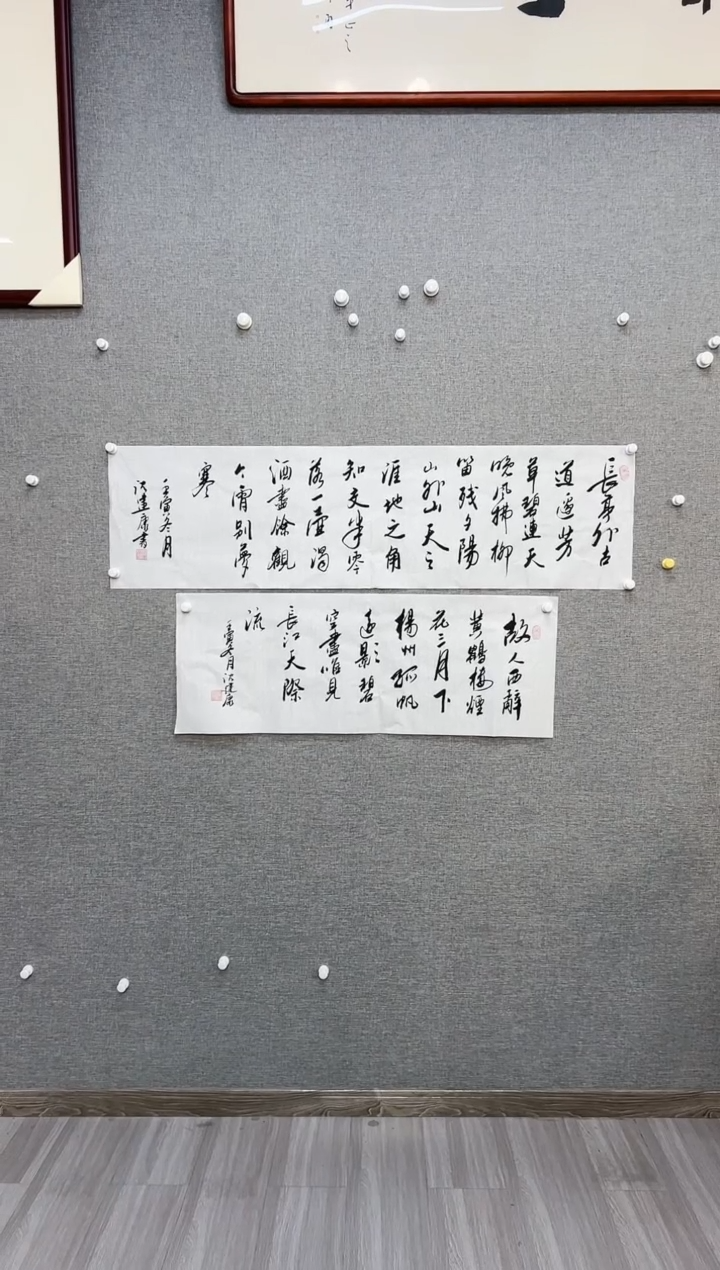 長亭外古
道邊芳
草碧連天
晚風拂柳
笛殘夕陽
山外山天之
涯地之角
知交半零
落一壺濁
酒盡餘歡
今宵別夢
寒
壬寅冬月
建康書
故人西辭
黃鶴樓煙
花三月下
楊州孤帆
遠影碧
空盡唯見
長江天際
流
壬寅冬月
建康